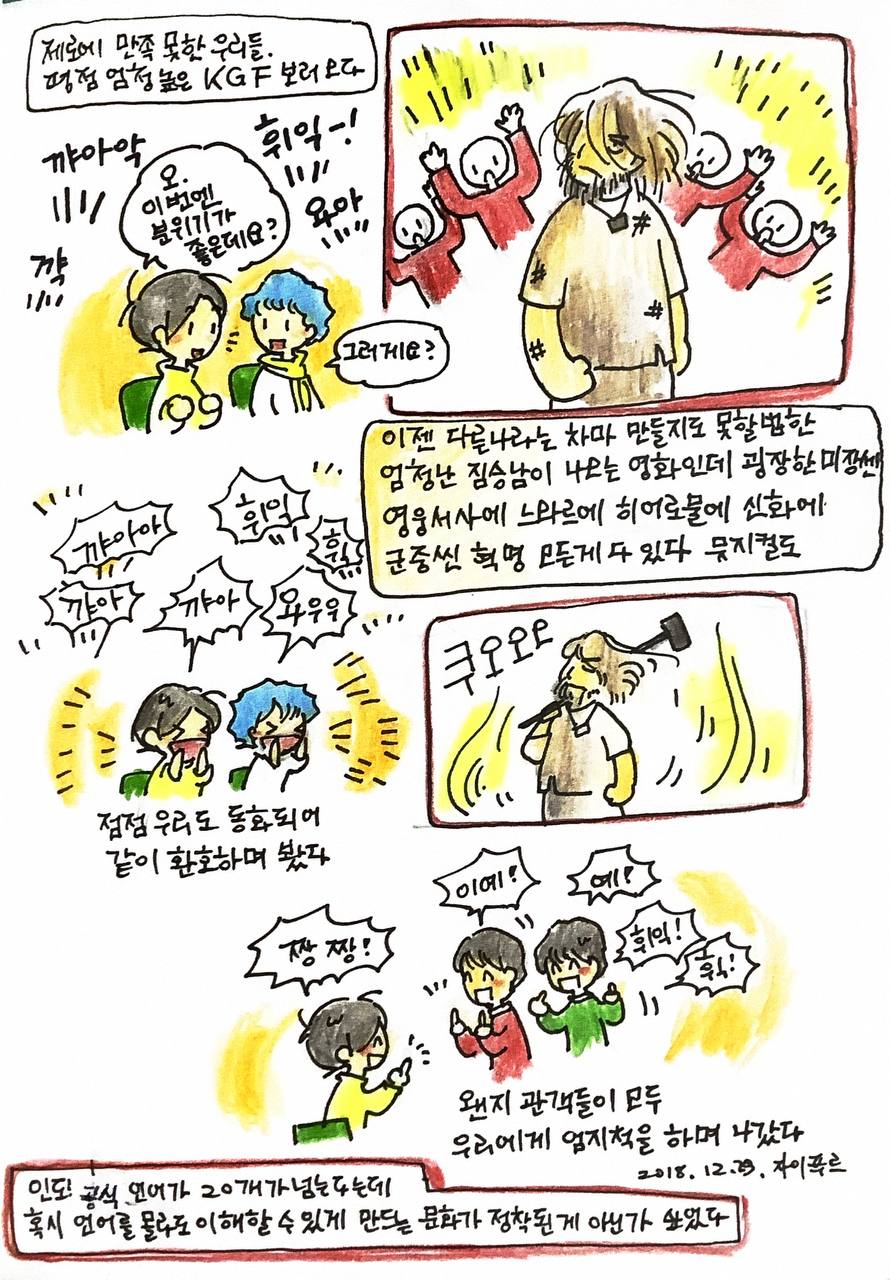 제로에 만족 못한 우리들.
평점 엄청 높은 KGF 보러 오다
꺄아악
휘익-!
오.
이번엔
분위기가
좋은데요?
요아
꺅
그러게요?
이젠 다른나라는 차마 만들지도 못할법한
엄청난 짐승남이 나오는 영화인데 굉장한 미장센
영웅서사에 느와르에 히어로물에 신화에
군중씬 혁명 모든게 다 있다 뮤지컬도
꺄아아
휘익
휙
꺄아
꺄아
와우우
쿠오오오
점점 우리도 동화되어
같이 환호하며 봤다
이예!
예!
짱 짱!
휘익!
휙!
왠지 관객들이 모두
우리에게 엄지척을 하며 나갔다
2018.12.29. 자이푸르
인도! 공식 언어가 20개가 넘는다는데
혹시 언어를 몰라도 이해할 수 있게 만드는 문화가 정착된게 아닌가 싶었다